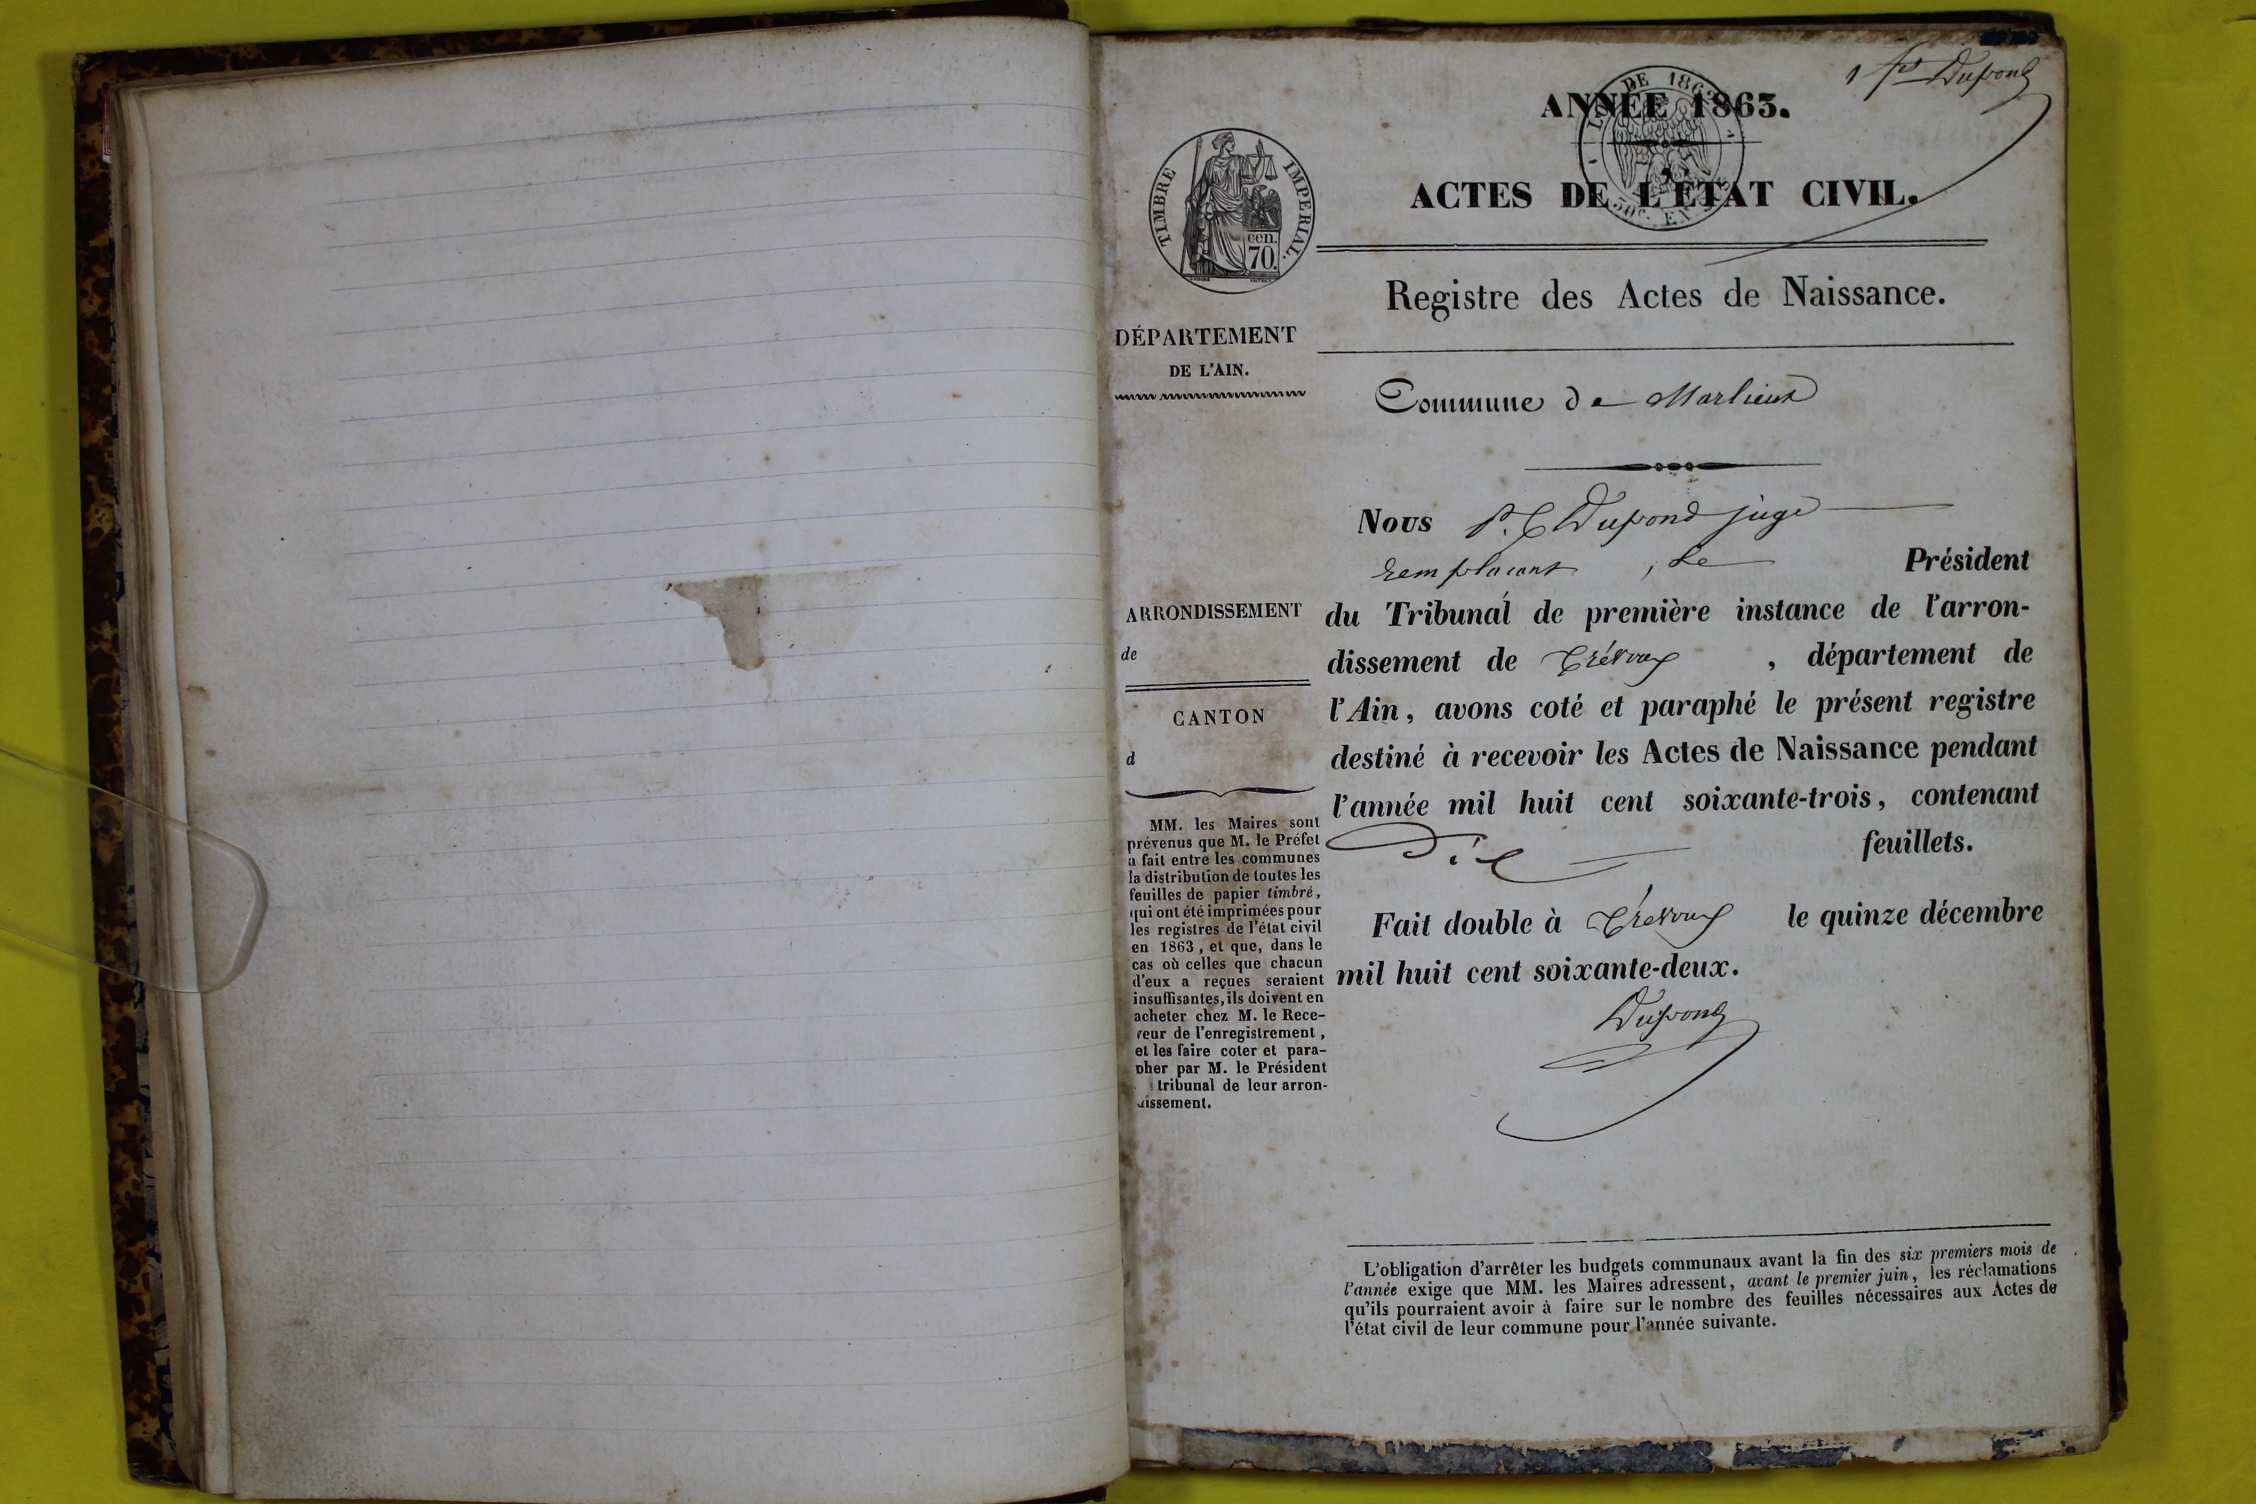 1 fo Dupond
ANNÉE 1863.
DE 1862
50c. EN SUS
TIMBRE IMPERIAL.
cen.
70
ACTES DE L'ÉTAT CIVIL.
Registre des Actes de Naissance.
DÉPARTEMENT
DE L'AIN.
Commune de Marlieux
Nous P. C Dupond juge
remplacant, le Président
ARRONDISSEMENT
de
du Tribunal de première instance de l'arron-
dissement de Trévoux, département de
l'Ain, avons coté et paraphé le présent registre
destiné à recevoir les Actes de Naissance pendant
l'année mil huit cent soixante-trois, contenant
Dix feuillets.
CANTON
d
MM. les Maires sont
prévenus que M. le Préfet
a fait entre les communes
la distribution de toutes les
feuilles de papier timbré,
qui ont été imprimées pour
les registres de l'état civil
en 1863, et que, dans le
cas où celles que chacun
d'eux a reçues seraient
insuffisantes, ils doivent en
acheter chez M. le Rece-
veur de l'enregistrement,
et les faire coter et para-
pher par M. le Président
tribunal de leur arron-
dissement.
Fait double à Trévoux le quinze décembre
mil huit cent soixante-deux.
Dupond
L'obligation d'arrêter les budgets communaux avant la fin des six premiers mois de
l'année exige que MM. les Maires adressent, avant le premier juin, les réclamations
qu'ils pourraient avoir à faire sur le nombre des feuilles nécessaires aux Actes de
l'état civil de leur commune pour l'année suivante.